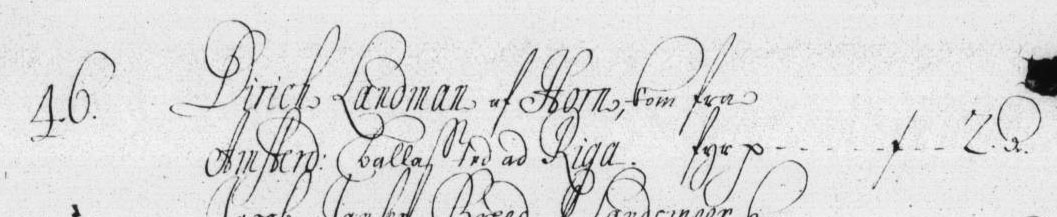 46. Dirich Landman af Horn, kom fra
Amsterd: ballasted ad Riga. fyrp - - - - - f - - 2. D.